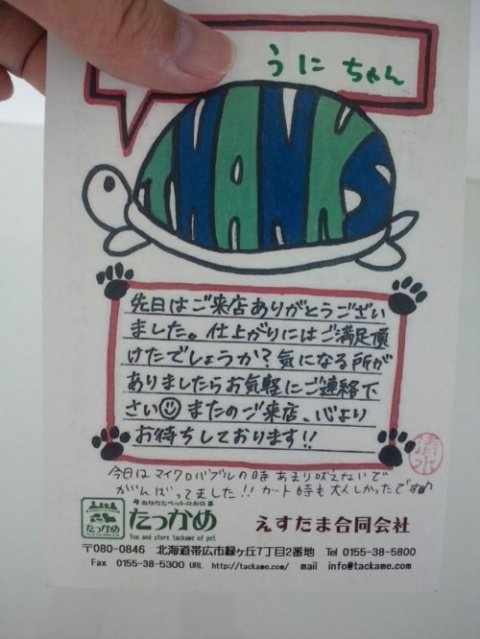 うにちゃん
THANKS
先日はご来店ありがとうござい
ました。仕上がりにはご満足頂
けたでしょうか?気になる所が
ありましたらお気軽にご連絡下
さい☺またのご来店、心より
お待ちしております!!
今日はマイクロバブルの時あまり吠えないで
がんばってました!!カット時も大人しかったです
あなたとペットのお店
たっかめ
たっかめ
You and store tackame of pet
えすたま合同会社
〒080-0846 北海道帯広市緑ヶ丘7丁目2番地 Tel 0155-38-5800
Fax 0155-38-5300 URL http://tackame.com/ mail info@tackame.com